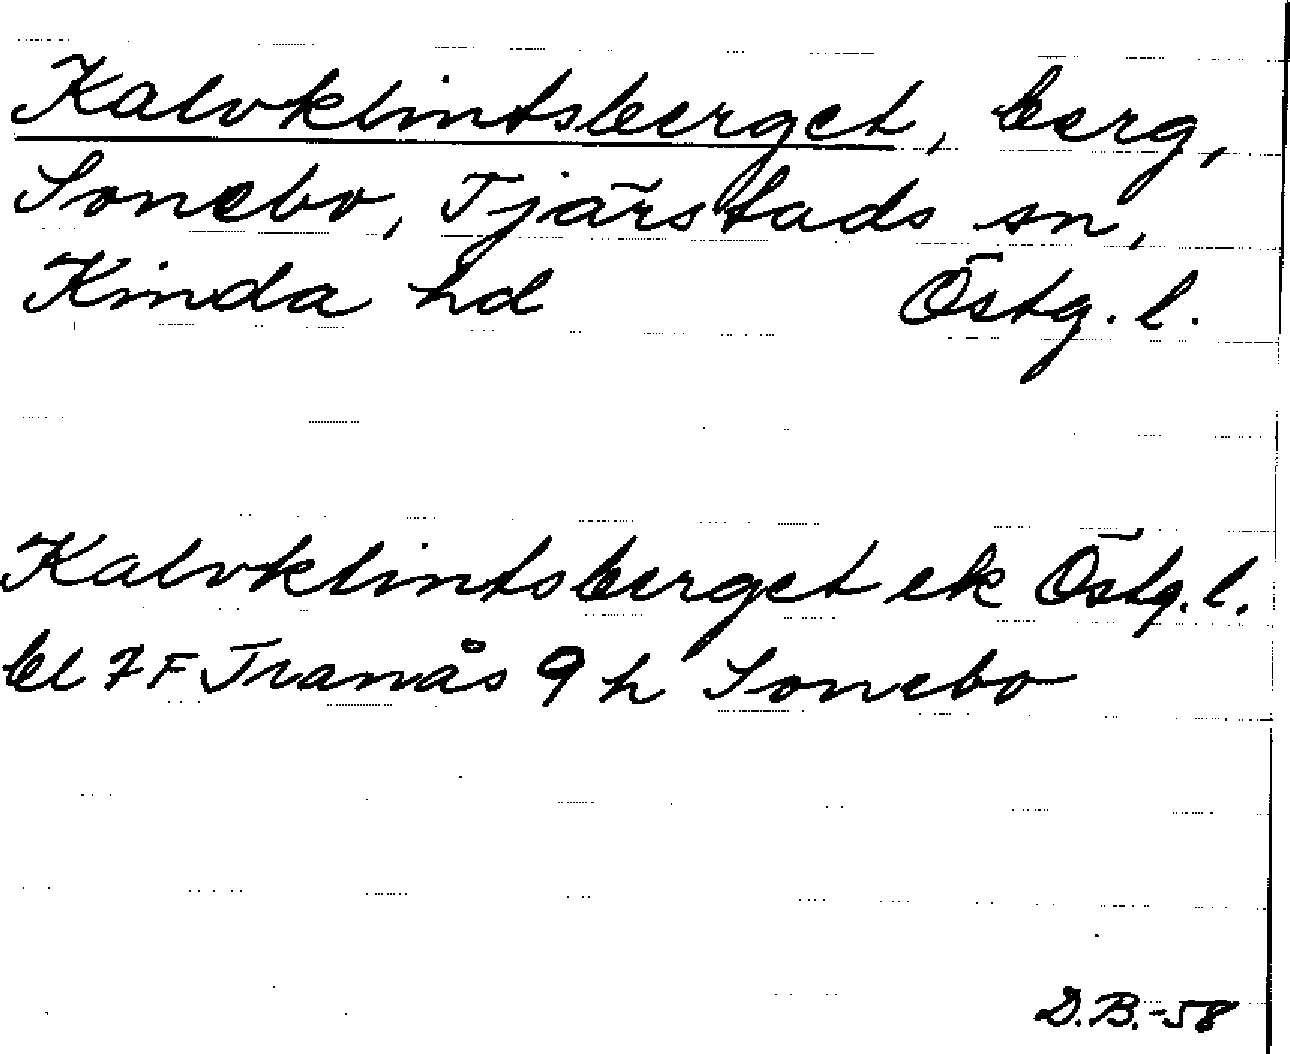 Kalvklintsberget, berg,
Sonebo, Tjärstads sn,
Kinda hd Östg. l.
Kalvklintsberget ek Östg. l.
bl 7 F Tranås 9 h Sonebo
D.B.-58